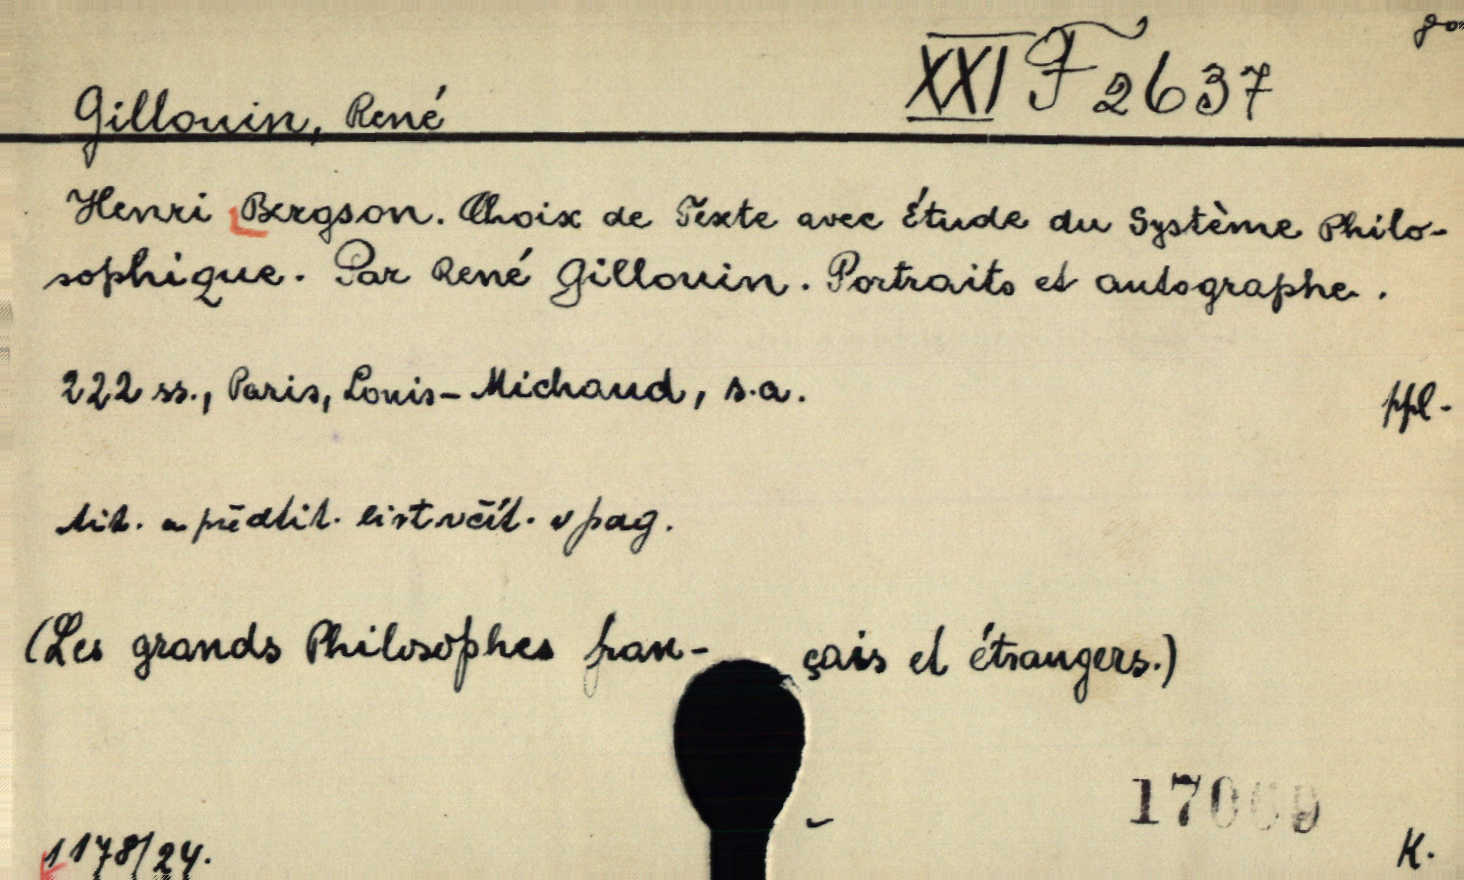 XXI F 2637
Gillouin, René
Henri Bergson. Choix de Texte avec Étude du Système Philo-
sophique. Par René Gillouin. Portraits et autographe.
222 ss., Paris, Louis-Michaud, s.a.
ppl.
tit. a předtit. list včít. v pag.
(Les grands Philosophes fran- çais et étrangers.)
17069
1178/24.
K.